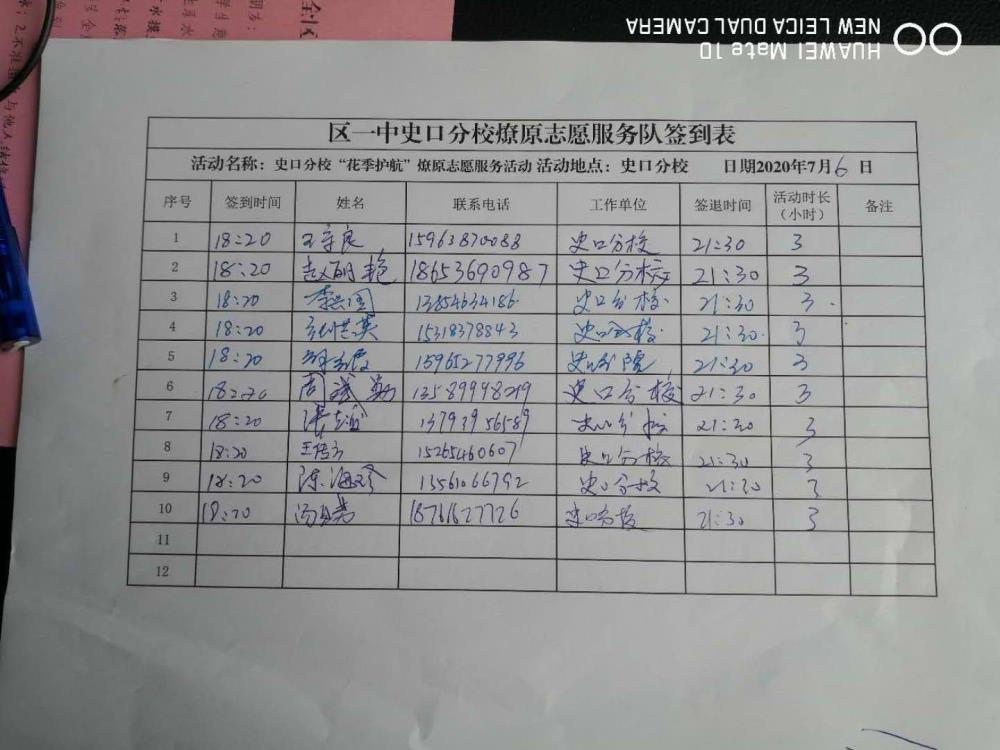 HUAWEI Mate 10
NEW LEICA DUAL CAMERA
区一中史口分校燎原志愿服务队签到表
活动名称：史口分校“花季护航”燎原志愿服务活动 活动地点：史口分校 日期2020年7月6日
序号 签到时间 姓名 联系电话 工作单位 签退时间 活动时长（小时） 备注
1 18:20 王守良 15963870088 史口分校 21:30 3
2 18:20 赵丽艳 18653690987 史口分校 21:30 3
3 18:20 13854634186 史口分校 21:30 3
4 18:20 15318378843 史口分校 21:30 3
5 18:20 15965277996 21:30 3
6 18:20 周 13589998219 史口分校 21:30 3
7 18:20 13793956589 史口分校 21:30 3
8 18:20 15265460607 史口分校 21:30 3
9 18:20 陈海珍 13561066792 史口分校 21:30 3
10 18:20 18761627726 史口分校 21:30 3
11
12